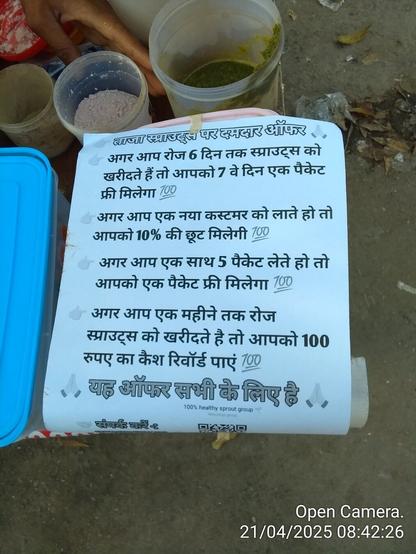 ताजा स्प्राउट्स पर दमदार ऑफर 🙏
👉 अगर आप रोज 6 दिन तक स्प्राउट्स को
खरीदते हैं तो आपको 7 वे दिन एक पैकेट
फ्री मिलेगा 💯
👉 अगर आप एक नया कस्टमर को लाते हो तो
आपको 10% की छूट मिलेगी 💯
👉 अगर आप एक साथ 5 पैकेट लेते हो तो
आपको एक पैकेट फ्री मिलेगा 💯
👉 अगर आप एक महीने तक रोज
स्प्राउट्स को खरीदते है तो आपको 100
रुपए का कैश रिवॉर्ड पाएं 💯
🙏 यह ऑफर सभी के लिए है 🙏
100% healthy sprout group
संपर्क करें :
Open Camera.
21/04/2025 08:42:26